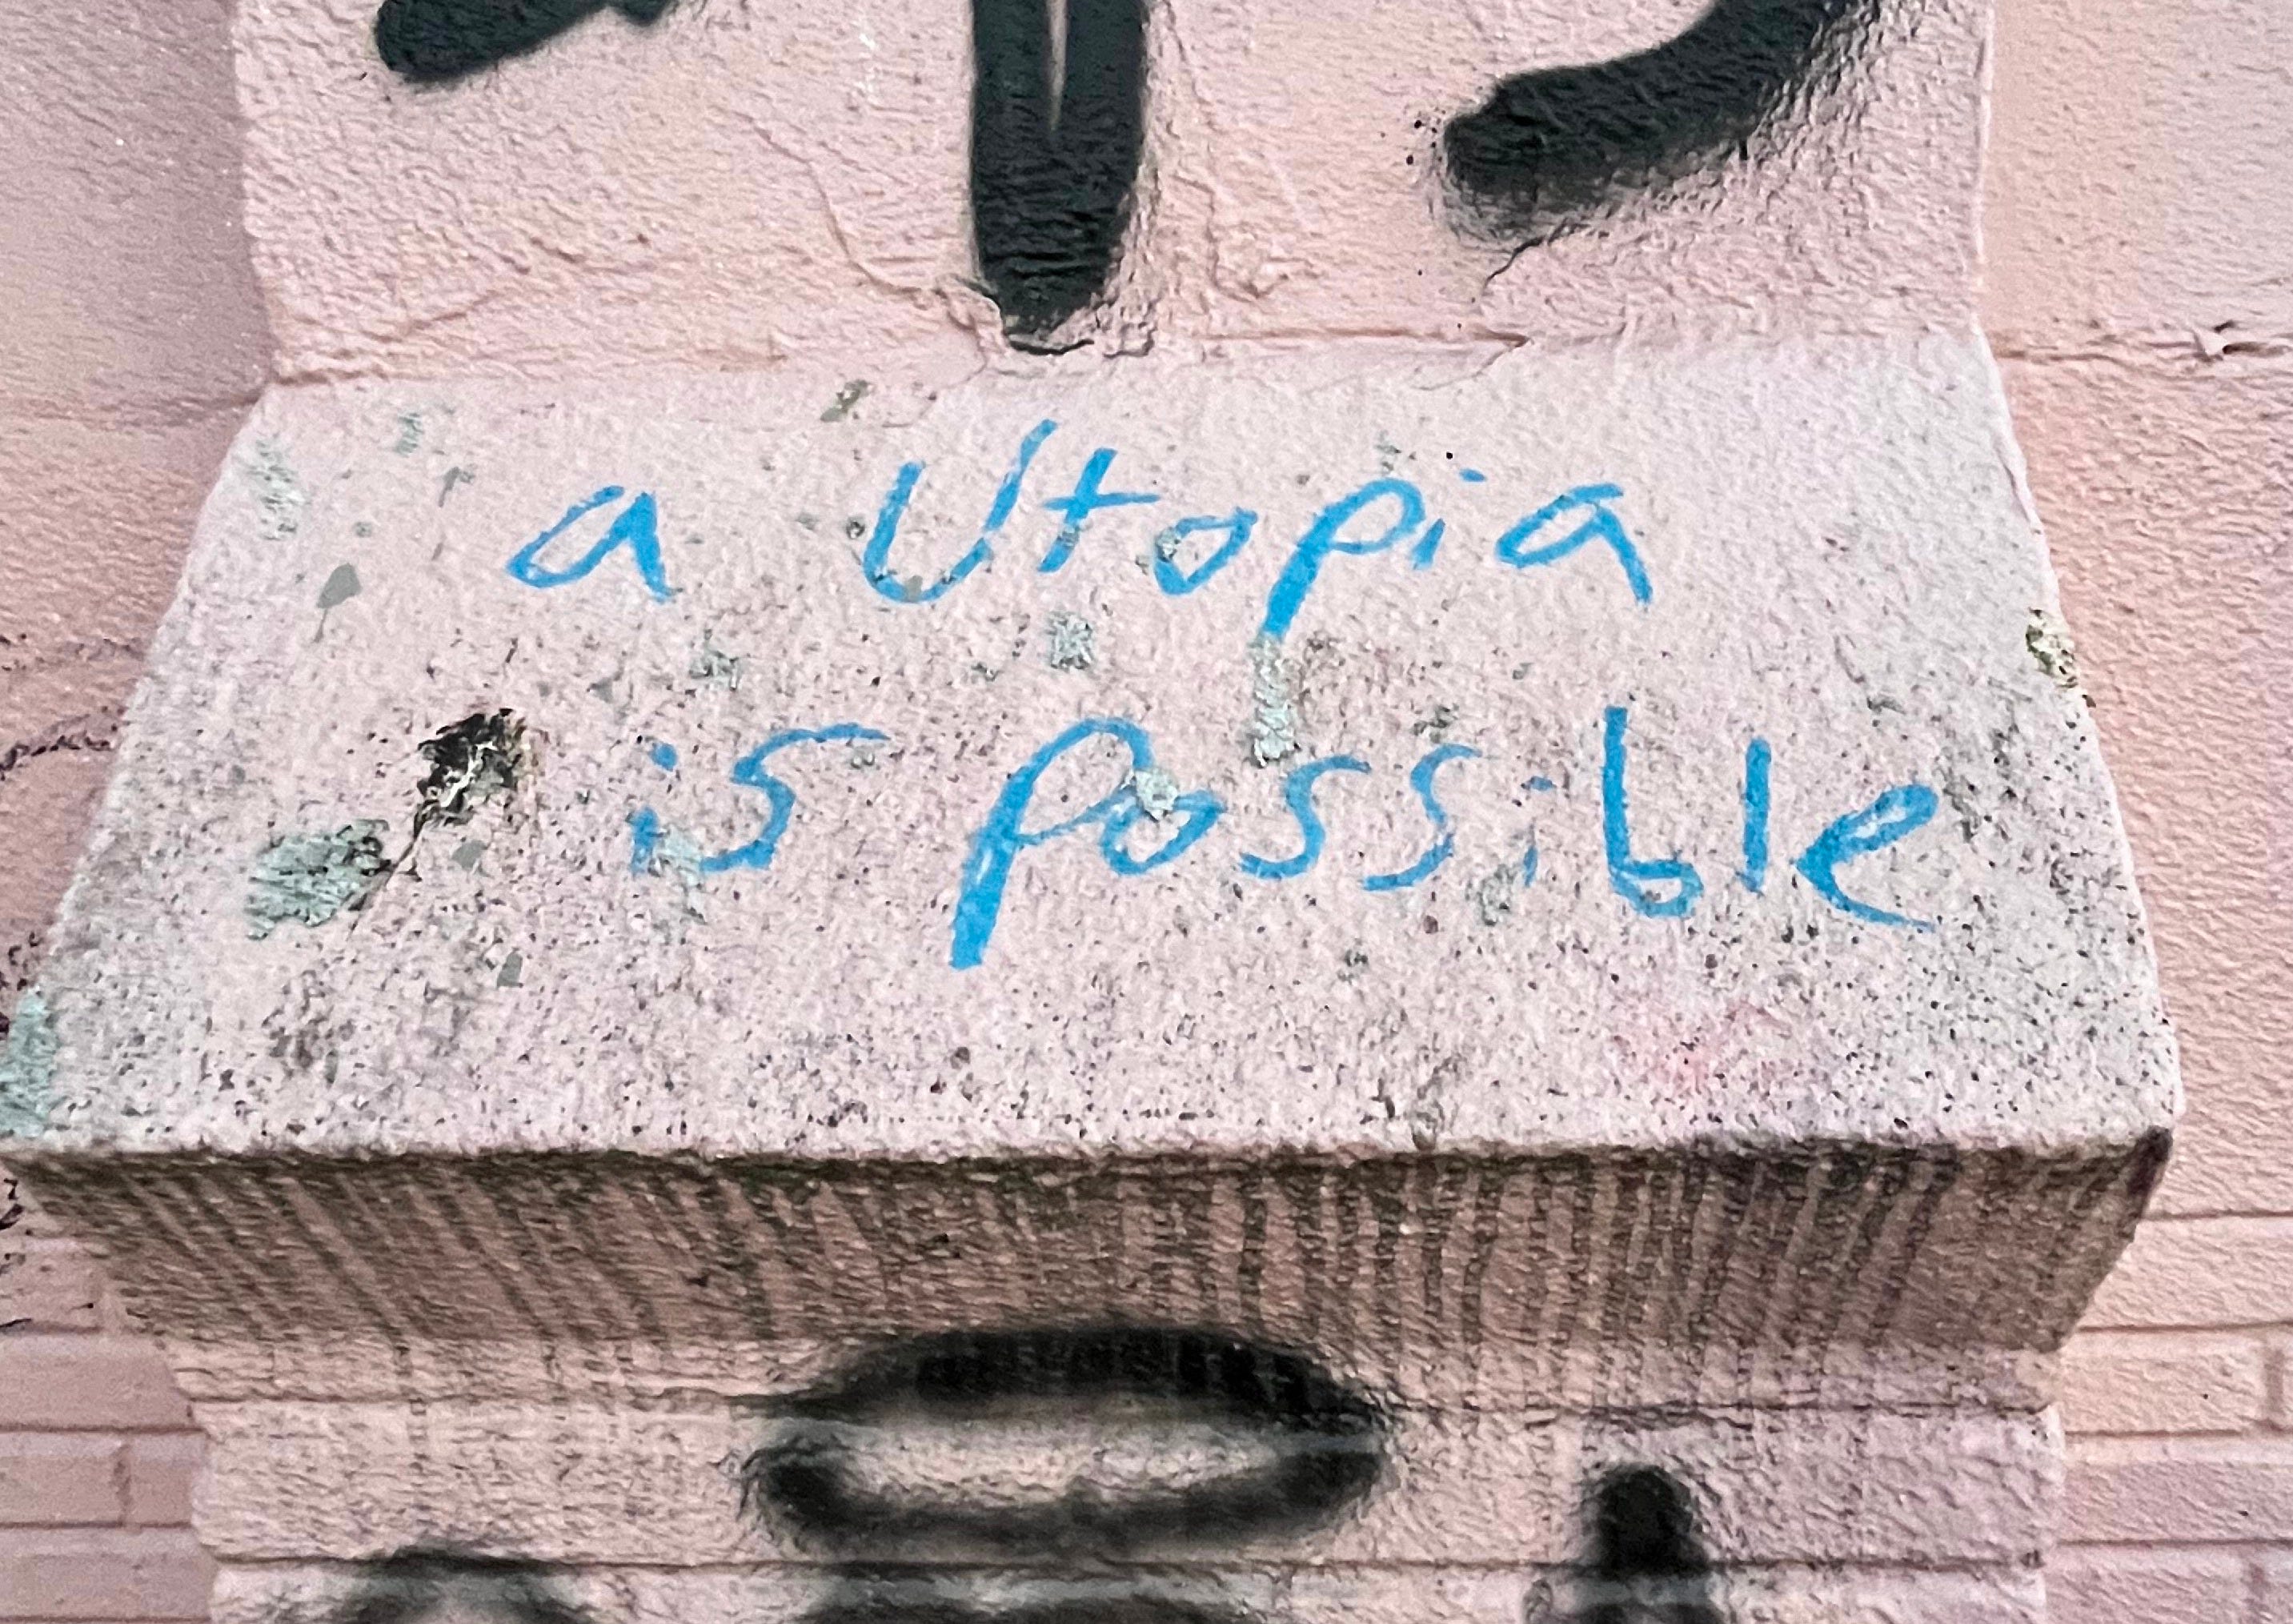 a Utopia
is possible